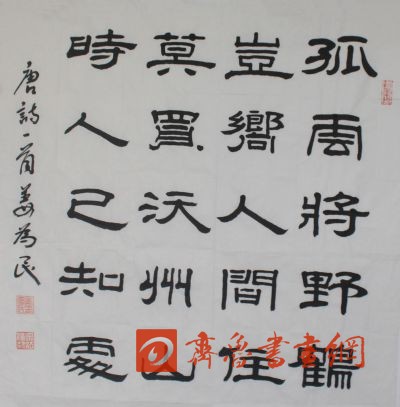 孤雲將野鶴
豈嚮人間住
莫買沃州山
時人已知處
唐詩一首姜為民
齊魯書畫網